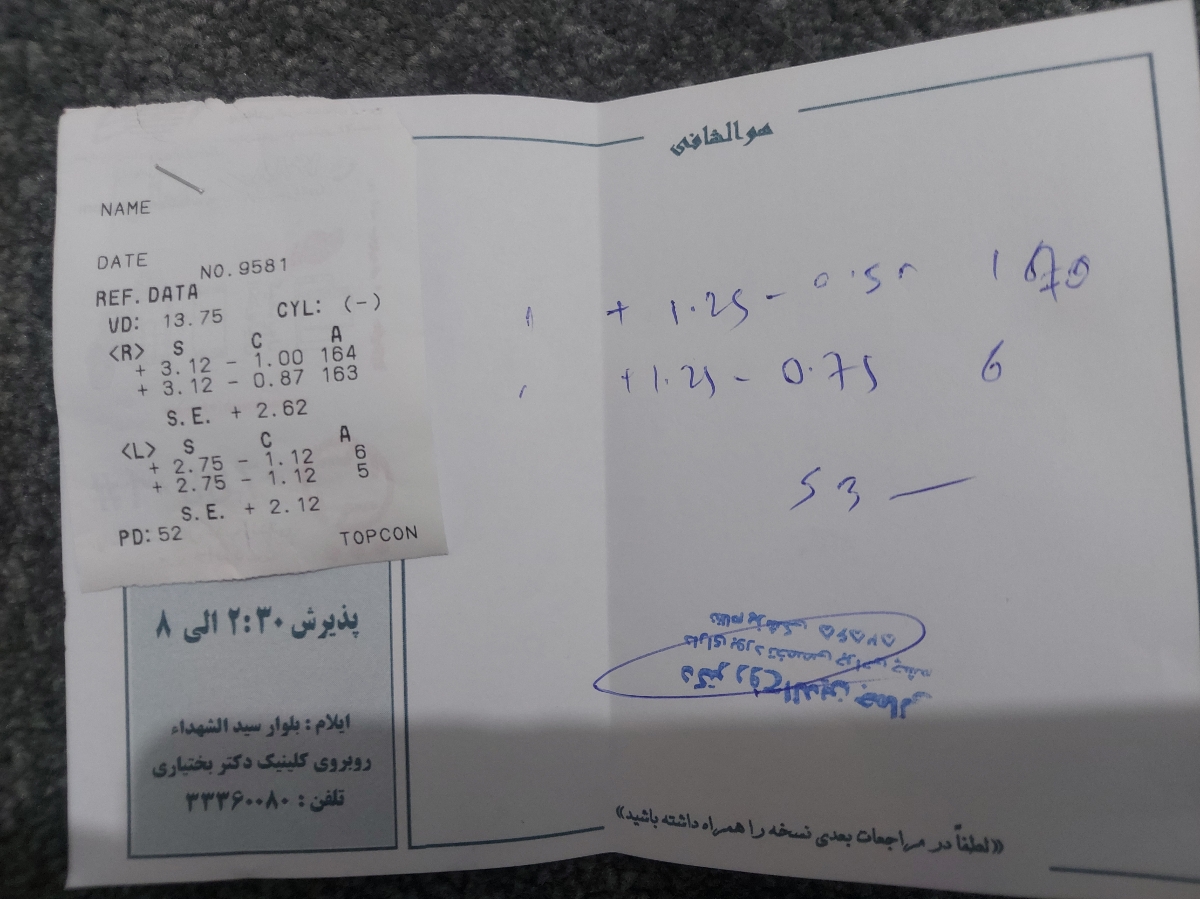 هوالشافی
NAME
DATE
NO.9581
REF. DATA
VD: 13.75 CYL: (-)
<R> S C A
+ 3.12 - 1.00 164
+ 3.12 - 0.87 163
S.E. + 2.62
<L> S C A
+ 2.75 - 1.12 6
+ 2.75 - 1.12 5
S.E. + 2.12
PD: 52
TOPCON
+ 1.25 - 0.50
+ 1.25 - 0.75 6
53 —
پذیرش ۲:۳۰ الی ۸
ایلام : بلوار سید الشهداء
روبروی کلینیک دکتر بختیاری
تلفن : ۳۳۳۶۰۰۸۰
دکتر روح الدین جمالی
دارای بورد تخصصی جراحی چشم
نظام پزشکی
«لطفاً در مراجعات بعدی نسخه را همراه داشته باشید»